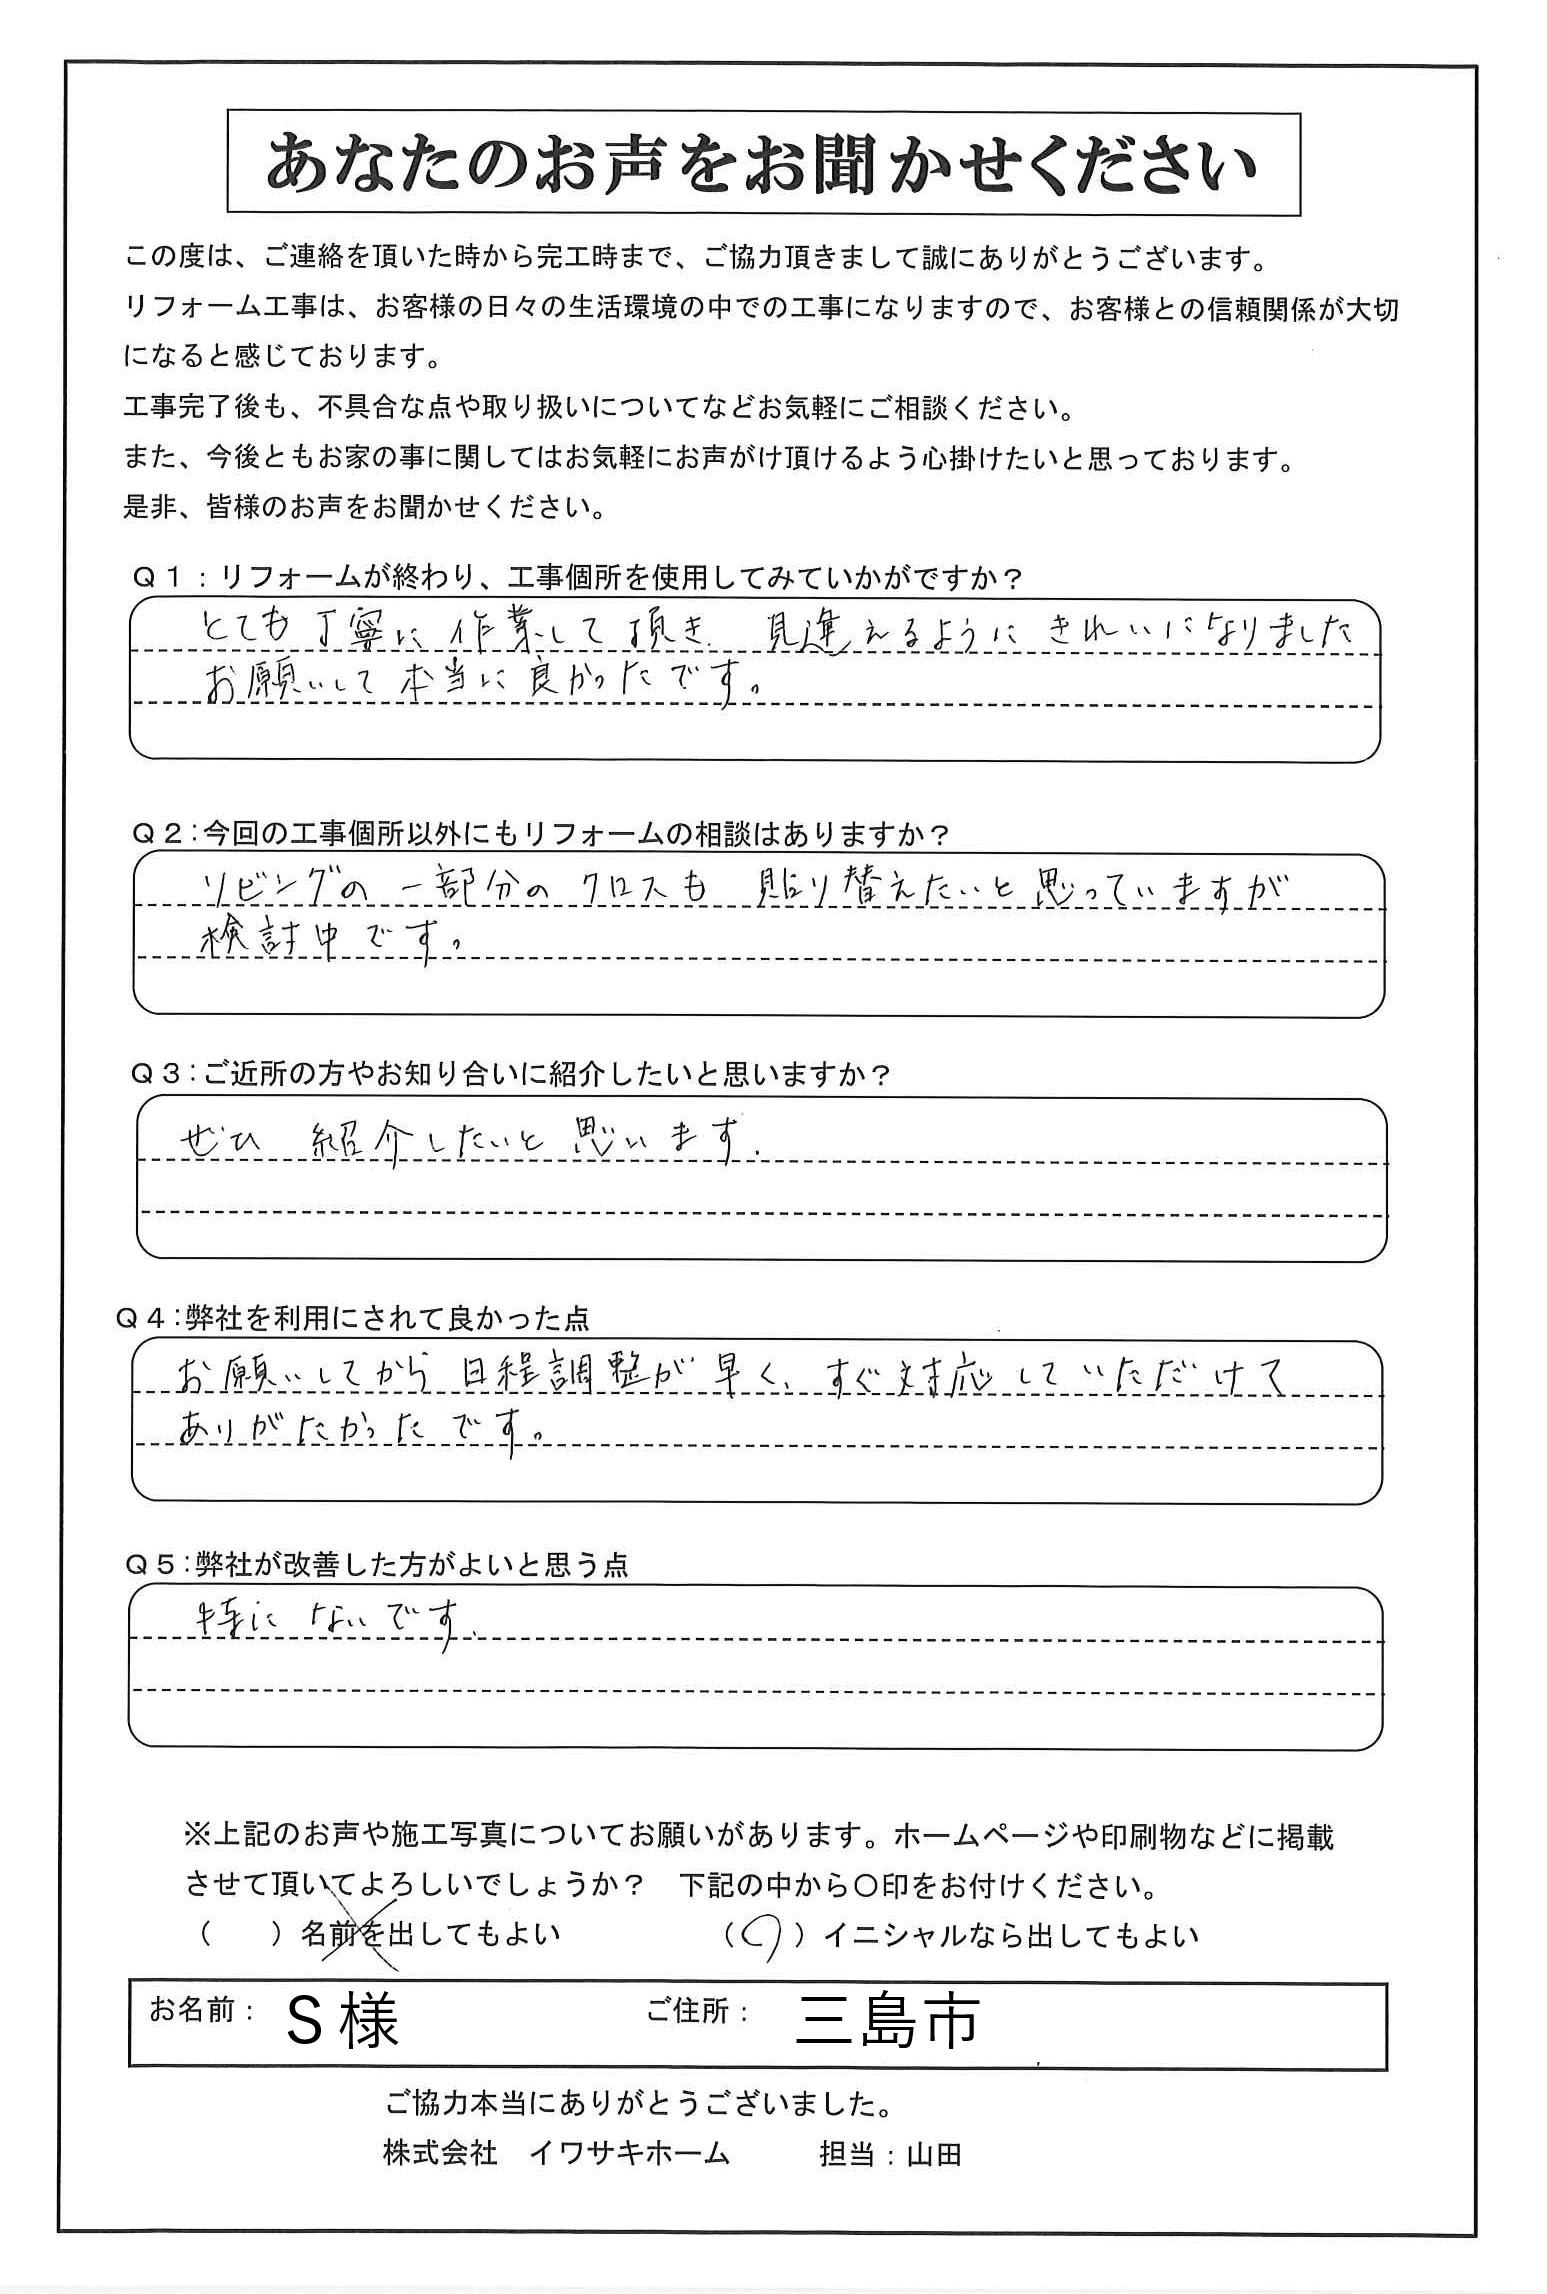 あなたのお声をお聞かせください
この度は、ご連絡を頂いた時から完工時まで、ご協力頂きまして誠にありがとうございます。
リフォーム工事は、お客様の日々の生活環境の中での工事になりますので、お客様との信頼関係が大切
になると感じております。
工事完了後も、不具合な点や取り扱いについてなどお気軽にご相談ください。
また、今後ともお家の事に関してはお気軽にお声がけ頂けるよう心掛けたいと思っております。
是非、皆様のお声をお聞かせください。
Q1：リフォームが終わり、工事個所を使用してみていかがですか？
とても丁寧に作業して頂き、見違えるようにきれいになりました
お願いして本当に良かったです。
Q2：今回の工事個所以外にもリフォームの相談はありますか？
リビングの一部分のクロスも貼り替えたいと思っていますが
検討中です。
Q3：ご近所の方やお知り合いに紹介したいと思いますか？
ぜひ 紹介したいと思います.
Q4：弊社を利用にされて良かった点
お願いしてから日程調整が早く、すぐ対応していただけて
ありがたかったです。
Q5：弊社が改善した方がよいと思う点
特にないです.
※上記のお声や施工写真についてお願いがあります。ホームページや印刷物などに掲載
させて頂いてよろしいでしょうか？　下記の中から〇印をお付けください。
（　　）名前を出してもよい　　（〇）イニシャルなら出してもよい
お名前： S様　　ご住所： 三島市
ご協力本当にありがとうございました。
株式会社　イワサキホーム　　担当：山田